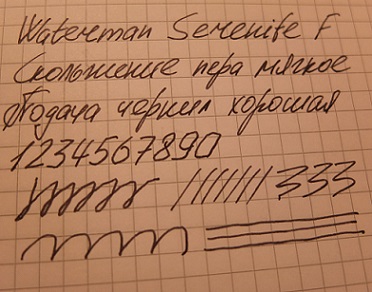 Waterman Serenite F
Скольжение пера мягкое
Подача чернил хорошая
1234567890
333